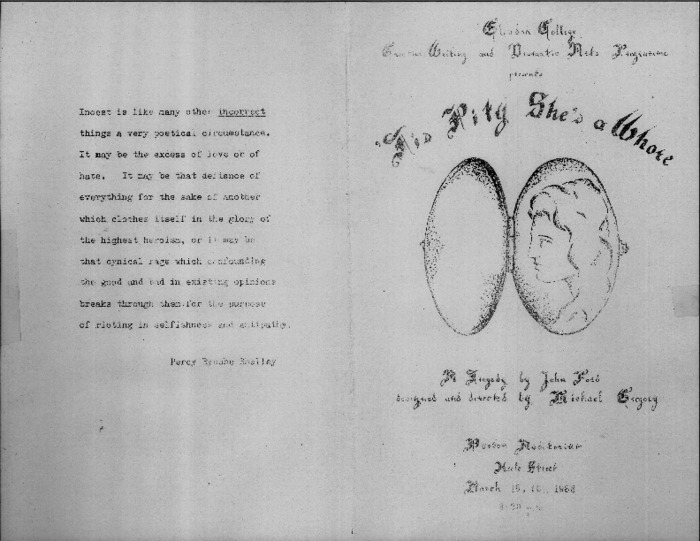 Incest is like many other incorrect
things a very poetical circumstance.
It may be the excess of love or of
hate. It may be that defiance of
everything for the sake of another
which clothes itself in the glory of
the highest heroism, or it may be
that cynical rage which confounding
the good and bad in existing opinions
breaks through them for the purpose
of rioting in selfishness and antipathy.
Percy Bysshe Shelley
College
Creative Writing and Dramatic Arts Programme
presents
'Tis Pity She's a Whore
A Tragedy by John Ford
designed and directed by Michael Gregory
Street
March 15, 16, 1968